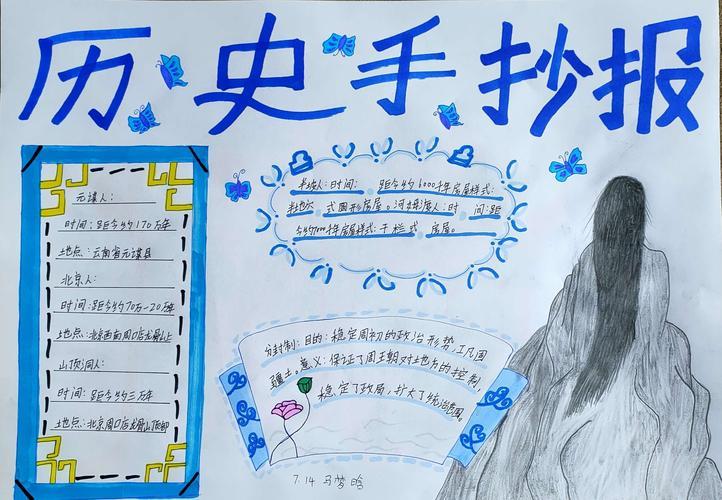 历史手抄报
元谋人:
时间:距今约170万年
地点:云南省元谋县
北京人:
时间:距今约70万-20万年
地点:北京西南周口店龙骨山上
山顶洞人:
时间:距今约三万年
地点:北京周口店龙骨山顶部
半坡人:时间: 距今约6000年房屋样式:
半地穴 式圆形房屋。河姆渡人:时 间:距
今约7000年房屋样式:干栏式 房屋。
分封制:目的:稳定周初的政治形势,巩固
疆土。意义:保证了周王朝对地方的控制,
稳定了政局,扩大了统治范围。
7.14 马梦晗